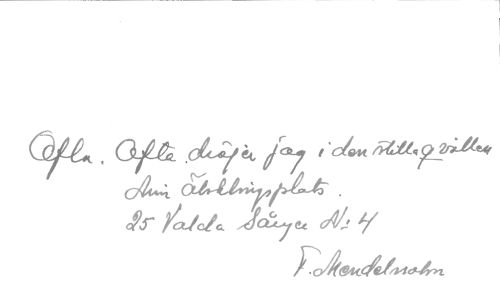 Ofta. Ofta dröjer jag i den stilla qvällen
Min Älsklingsplats.
25 Valda Sånger No: 4
F. Mendelssohn